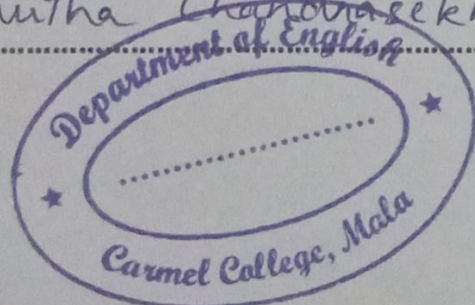 Department of English
Carmel College, Mala